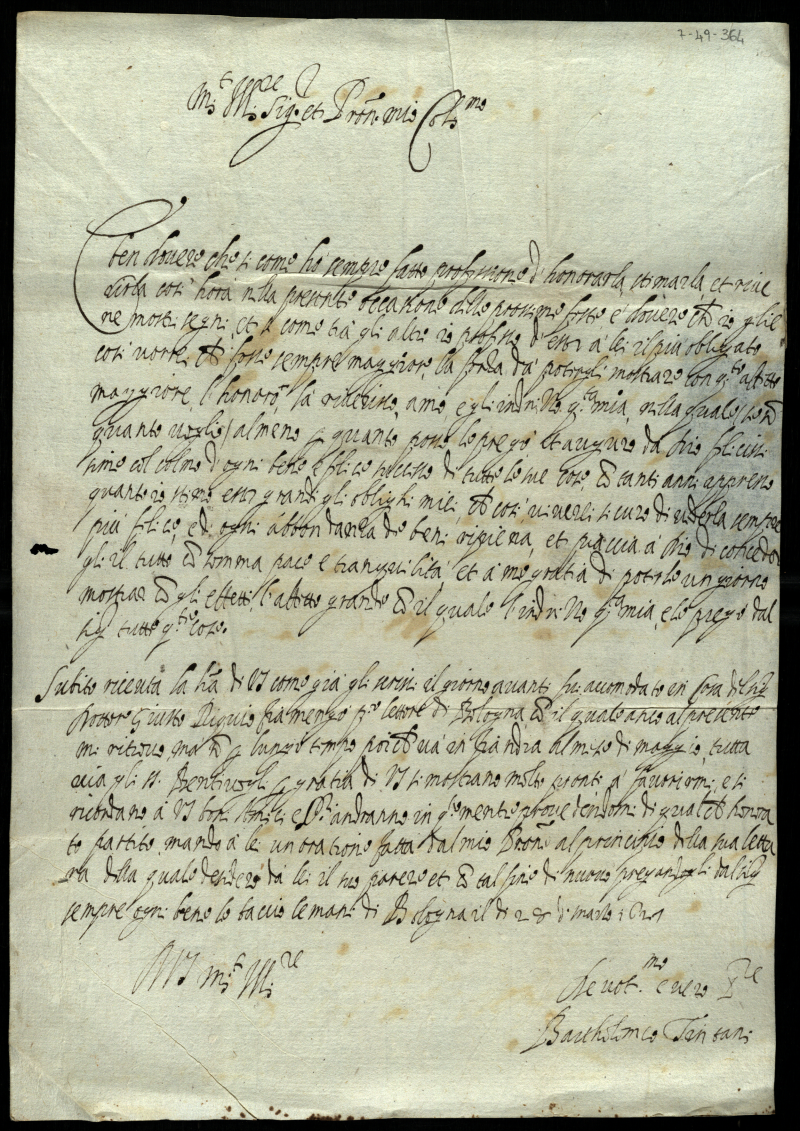 7-49-364
M.to Ill.re Sig.r et Pron. mio Col.mo
È ben dovere che si come hò sempre fatto professione d'honorarla, stimarla, et rive
rirla così hora nella presente occasione delle prossime feste è dovere ch'io gliè
ne mostri segni, et si come trà gli altri io professo d'esser à lei il più obligato
così vorrei che fosse sempre maggiore la forza da potergli mostrare con q.to affetto
maggiore l'honoro, la riverisco, amo, e gli indrizzo q.ta mia, nella quale se non
quanto voglio almeno per quanto posso le prego et auguro da Dio felicissi
sime col colmo d'ogni bene e felice successo di tutte le sue cose con tanti anni appresso
quanto io stimo esser grandi gli oblighi miei, che così viverei sicuro di vederla sempre
più felice, e d'ogni abbondanza de beni ripiena, et piaccia à Dio di conceder
gli il tutto con somma pace e tranquilità et à me gratia di poterle un giorno
mostrar con gli effetti l'affetto grande con il quale l'indrizzo q.ta mia, e le prego dal
tutte q.te cose.
Subito ricevuta la di VS come già gli scrissi il giorno avanti fui accomodato in Casa del
Dottore Giusto Riquio fiamengo p.o lettore di Bologna con il quale anco al presente
mi ritrovo, ma non per lungo tempo poiche và in fiandra al mese di maggio, tutta
via gli SS. Bentivogli per gratia di VS si mostrano molto pronti à favorirmi, e si
ricordano à VS andranno in q.to mentre provedendomi di qualche honora
to partito, mando à lei un oratione fatta dal mio Pron. al principio della sua lettu
ra della quale desidero dà lei il suo parere et con tal fine di nuovo pregandogli dal
sempre ogni bene le baccio le mani di Bologna il di 28 di marzo
Di VS m.to Ill.re
Devot.mo e vero S.re
Bartholomeo Tintani